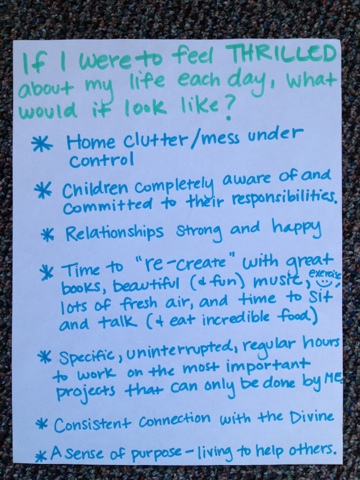 If I were to feel THRILLED
about my life each day, what
would it look like?
* Home clutter/mess under
control
* Children completely aware of and
committed to their responsibilities.
* Relationships strong and happy
* Time to "re-create" with great
books, beautiful (& fun) music, exercise,
lots of fresh air, and time to sit
and talk (& eat incredible food)
* Specific, uninterrupted, regular hours
to work on the most important
projects that can only be done by ME.
* Consistent connection with the Divine
* A sense of purpose - living to help others.